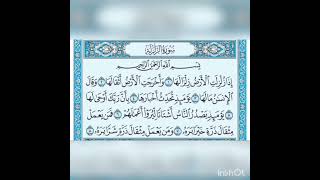 سورة الزلزلة
بِسْمِ اللَّهِ الرَّحْمَٰنِ الرَّحِيمِ
إِذَا زُلْزِلَتِ الْأَرْضُ زِلْزَالَهَا ۝١ وَأَخْرَجَتِ الْأَرْضُ أَثْقَالَهَا ۝٢ وَقَالَ
الْإِنسَانُ مَا لَهَا ۝٣ يَوْمَئِذٍ تُحَدِّثُ أَخْبَارَهَا ۝٤ بِأَنَّ رَبَّكَ أَوْحَىٰ لَهَا
۝٥ يَوْمَئِذٍ يَصْدُرُ النَّاسُ أَشْتَاتًا لِّيُرَوْا أَعْمَالَهُمْ ۝٦ فَمَن يَعْمَلْ
مِثْقَالَ ذَرَّةٍ خَيْرًا يَرَهُ ۝٧ وَمَن يَعْمَلْ مِثْقَالَ ذَرَّةٍ شَرًّا يَرَهُ ۝٨
InShOt